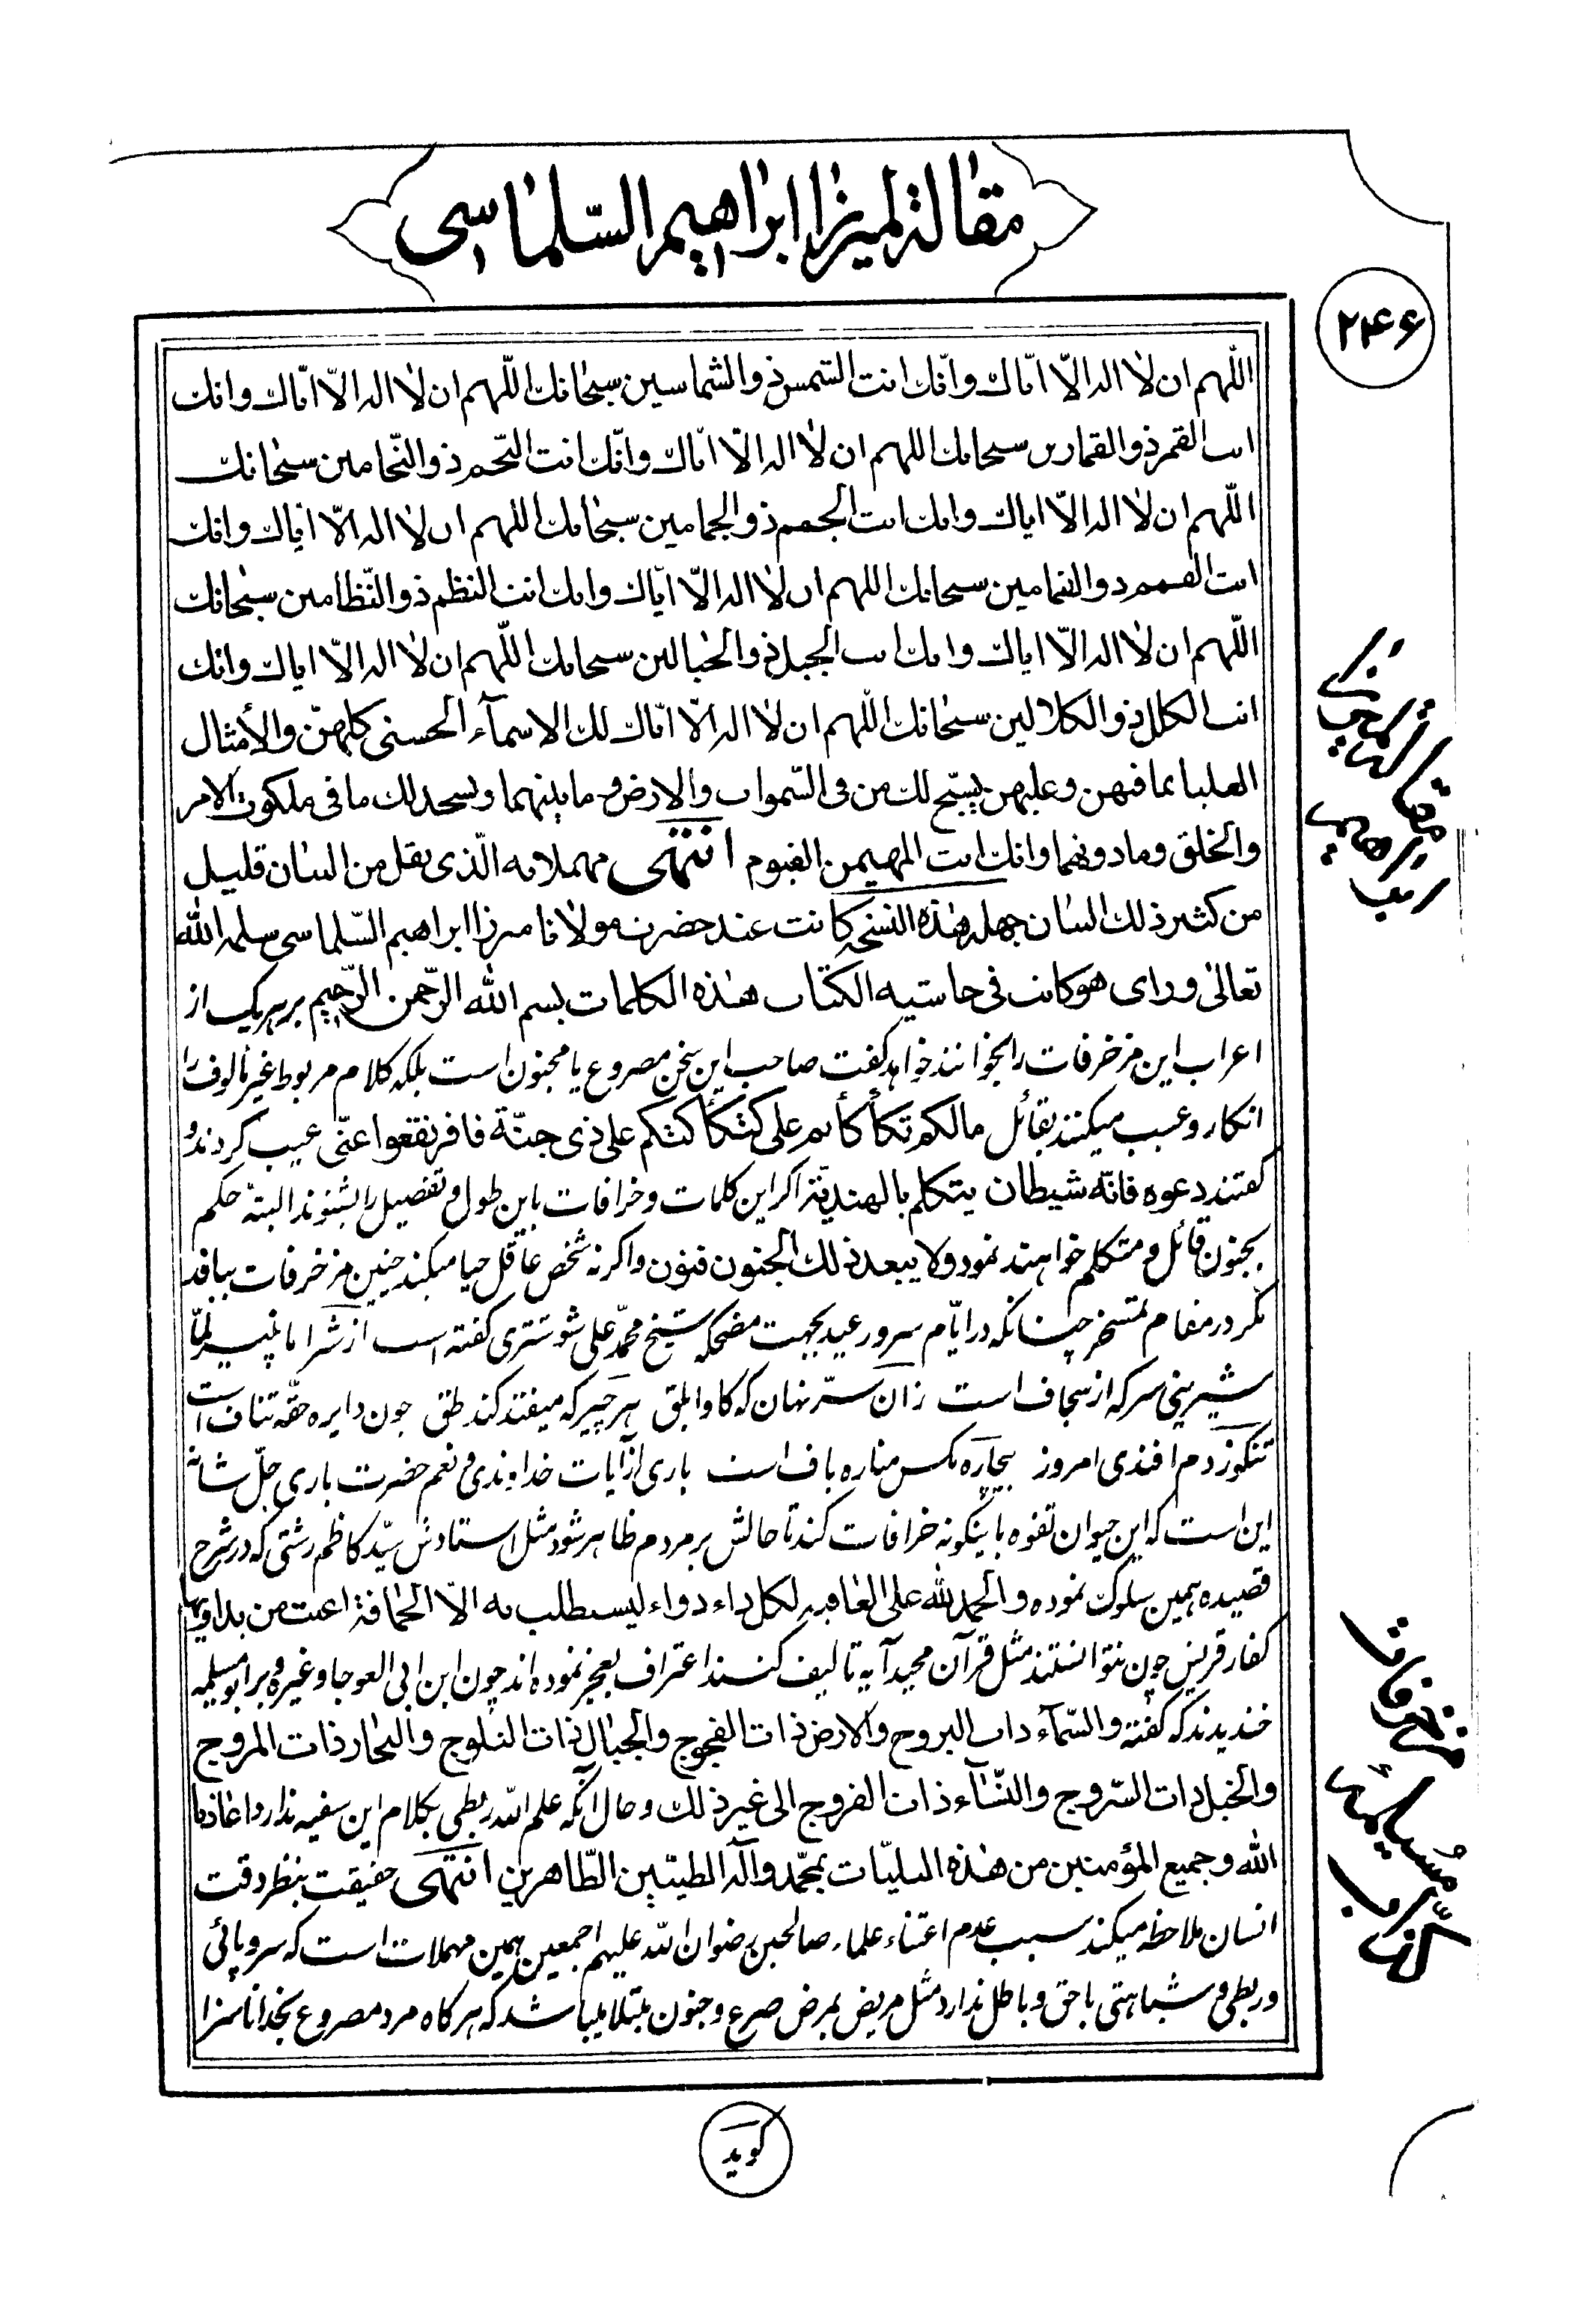 مقالة لميرزا ابراهيم السّلماسى
۲۴۶
اللّهم ان لا اله الّا ايّاك وانّك انت الشمس ذو الشماسين سبحانك اللّهم ان لا اله الّا ايّاك وانك
انت القمر ذو القمارين سبحانك اللهم ان لا اله الّا ايّاك وانّك انت النّجم ذو النّجامين سبحانك
اللّهم ان لا اله الّا اياك وانك انت الجمم ذو الجمامين سبحانك اللهم ان لا اله الّا ايّاك وانك
انت ذو سبحانك اللهم ان لا اله الّا ايّاك وانك انت النظم ذو النّظامين سبحانك
اللّهم ان لا اله الّا اياك وانك انت الجبل ذو الجبالين سبحانك اللّهم ان لا اله الّا اياك وانك
انت الكلل ذو الكلالين سبحانك اللّهم ان لا اله الّا ايّاك لك الاسمآء الحسنى كلهنّ والأمثال
العليا بما فيهن وعليهن يسبّح لك من فى السّموات والارض وما بينهما ويسجد لك ما فى ملكوت الامر
والخلق وما دونهما وانك انت المهيمن القيوم انتهى مهملاته الّذى نقل من البيان قليل
من كثير ذلك البيان جمله هذه النسخه كانت عند حضرت مولانا ميرزا ابراهيم السّلماسى سلمه الله
تعالى وراى هو كاتب فى حاشيه الكتاب هذه الكلمات بسم الله الرّحمن الرّحيم بر هر يك از
اعراب اين مزخرفات را بخوانند خواهد كفت صاحب اين سخن مصروع يا مجنون است بلكه كلام مربوط غير مألوف را
انكار وعيب ميكنند بقائل مالكم تكأكأتم على كتكأكئكم على ذى جنّة فافرنقعوا عنّى عيب كردند و
كفتند دعوه فانّه شيطان يتكلم بالهنديّة اكر اين كلمات وخرافات باين طول وتفصيل را بشنوند البته حكم
بجنون قائل و متكلم خواهند نمود ولا يبعد ذلك الجنون فنون واكرنه شخص عاقل حيا ميكند چنين مزخرفات ببافد
مكر در مقام تمسخر چنانكه در ايّام سرور عيد بجهت مضحكه شيخ محمّد على شوشترى كفته است
شيرينى سركه از سجاف است زان سرّ نهان كه كاو ابلق هر چيز كه ميفتد كند طق چون دايره حقّه تناف است
تنكوز دم افندى امروز بيچاره مكس مناره باف است بارى از آيات خداوندى و نعم حضرت بارى جلّ شانه
اين است كه اين حيوان تفوه باينكونه خرافات كند تا حالش بر مردم ظاهر شود مثل استادش سيّد كاظم رشتى كه در شرح
قصيده همين سلوك نموده والحمد لله على العافية لكل داء دواء ليستطلب به الّا الحماقة اعيت من يداويها
كفار قريش چون نتوانستند مثل قرآن مجيد آيه تأليف كنند اعتراف بعجز نموده اند چون ابن ابى العوجا وغيره و بر ابو مسيلمه
خنديدند كه كفته والسّمآء ذات البروج والارض ذات الفجوج والجبال ذات الثلوج والبحار ذات المروج
والخيل ذات السّروج والنّسآء ذات الفروج الى غير ذلك وحال آنكه علم الله ربطى بكلام اين سفيه ندارد اعاذنا
الله وجميع المؤمنين من هذه البليّات بمحمّد وآله الطيبّين الطّاهرين انتهى حقيقت بنظر دقت
انسان ملاحظه ميكند سبب عدم اعتناء علماء صالحين رضوان الله عليهم اجمعين همين مهملات است كه سر و پائى
وربطى و شباهتى با حق و باطل ندارد مثل مريض بمرض صرع وجنون مبتلا ميباشد كه هر كاه مرد مصروع بخدا ناسزا
كويد
ابراهيم
مزخرفات
مسيلمه
كذّاب